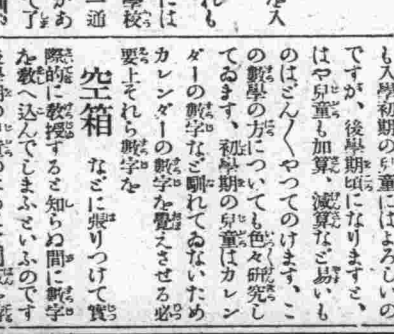 も入學初期の兒童にはよろしいの
ですが、後學期頃になりますと、
はや兒童も加算、減算など易いも
のはどん〳〵やつてのけます、こ
の數學の方についても色々研究し
てゐます、初學期の兒童はカレン
ダーの數字など馴れてゐないため
カレンダーの數字を覺えさせる必
要上それら數字を
空箱 などに張りつけて實
際的に教授すると知らぬ間に數字
を教へ込んでしまふといふのです